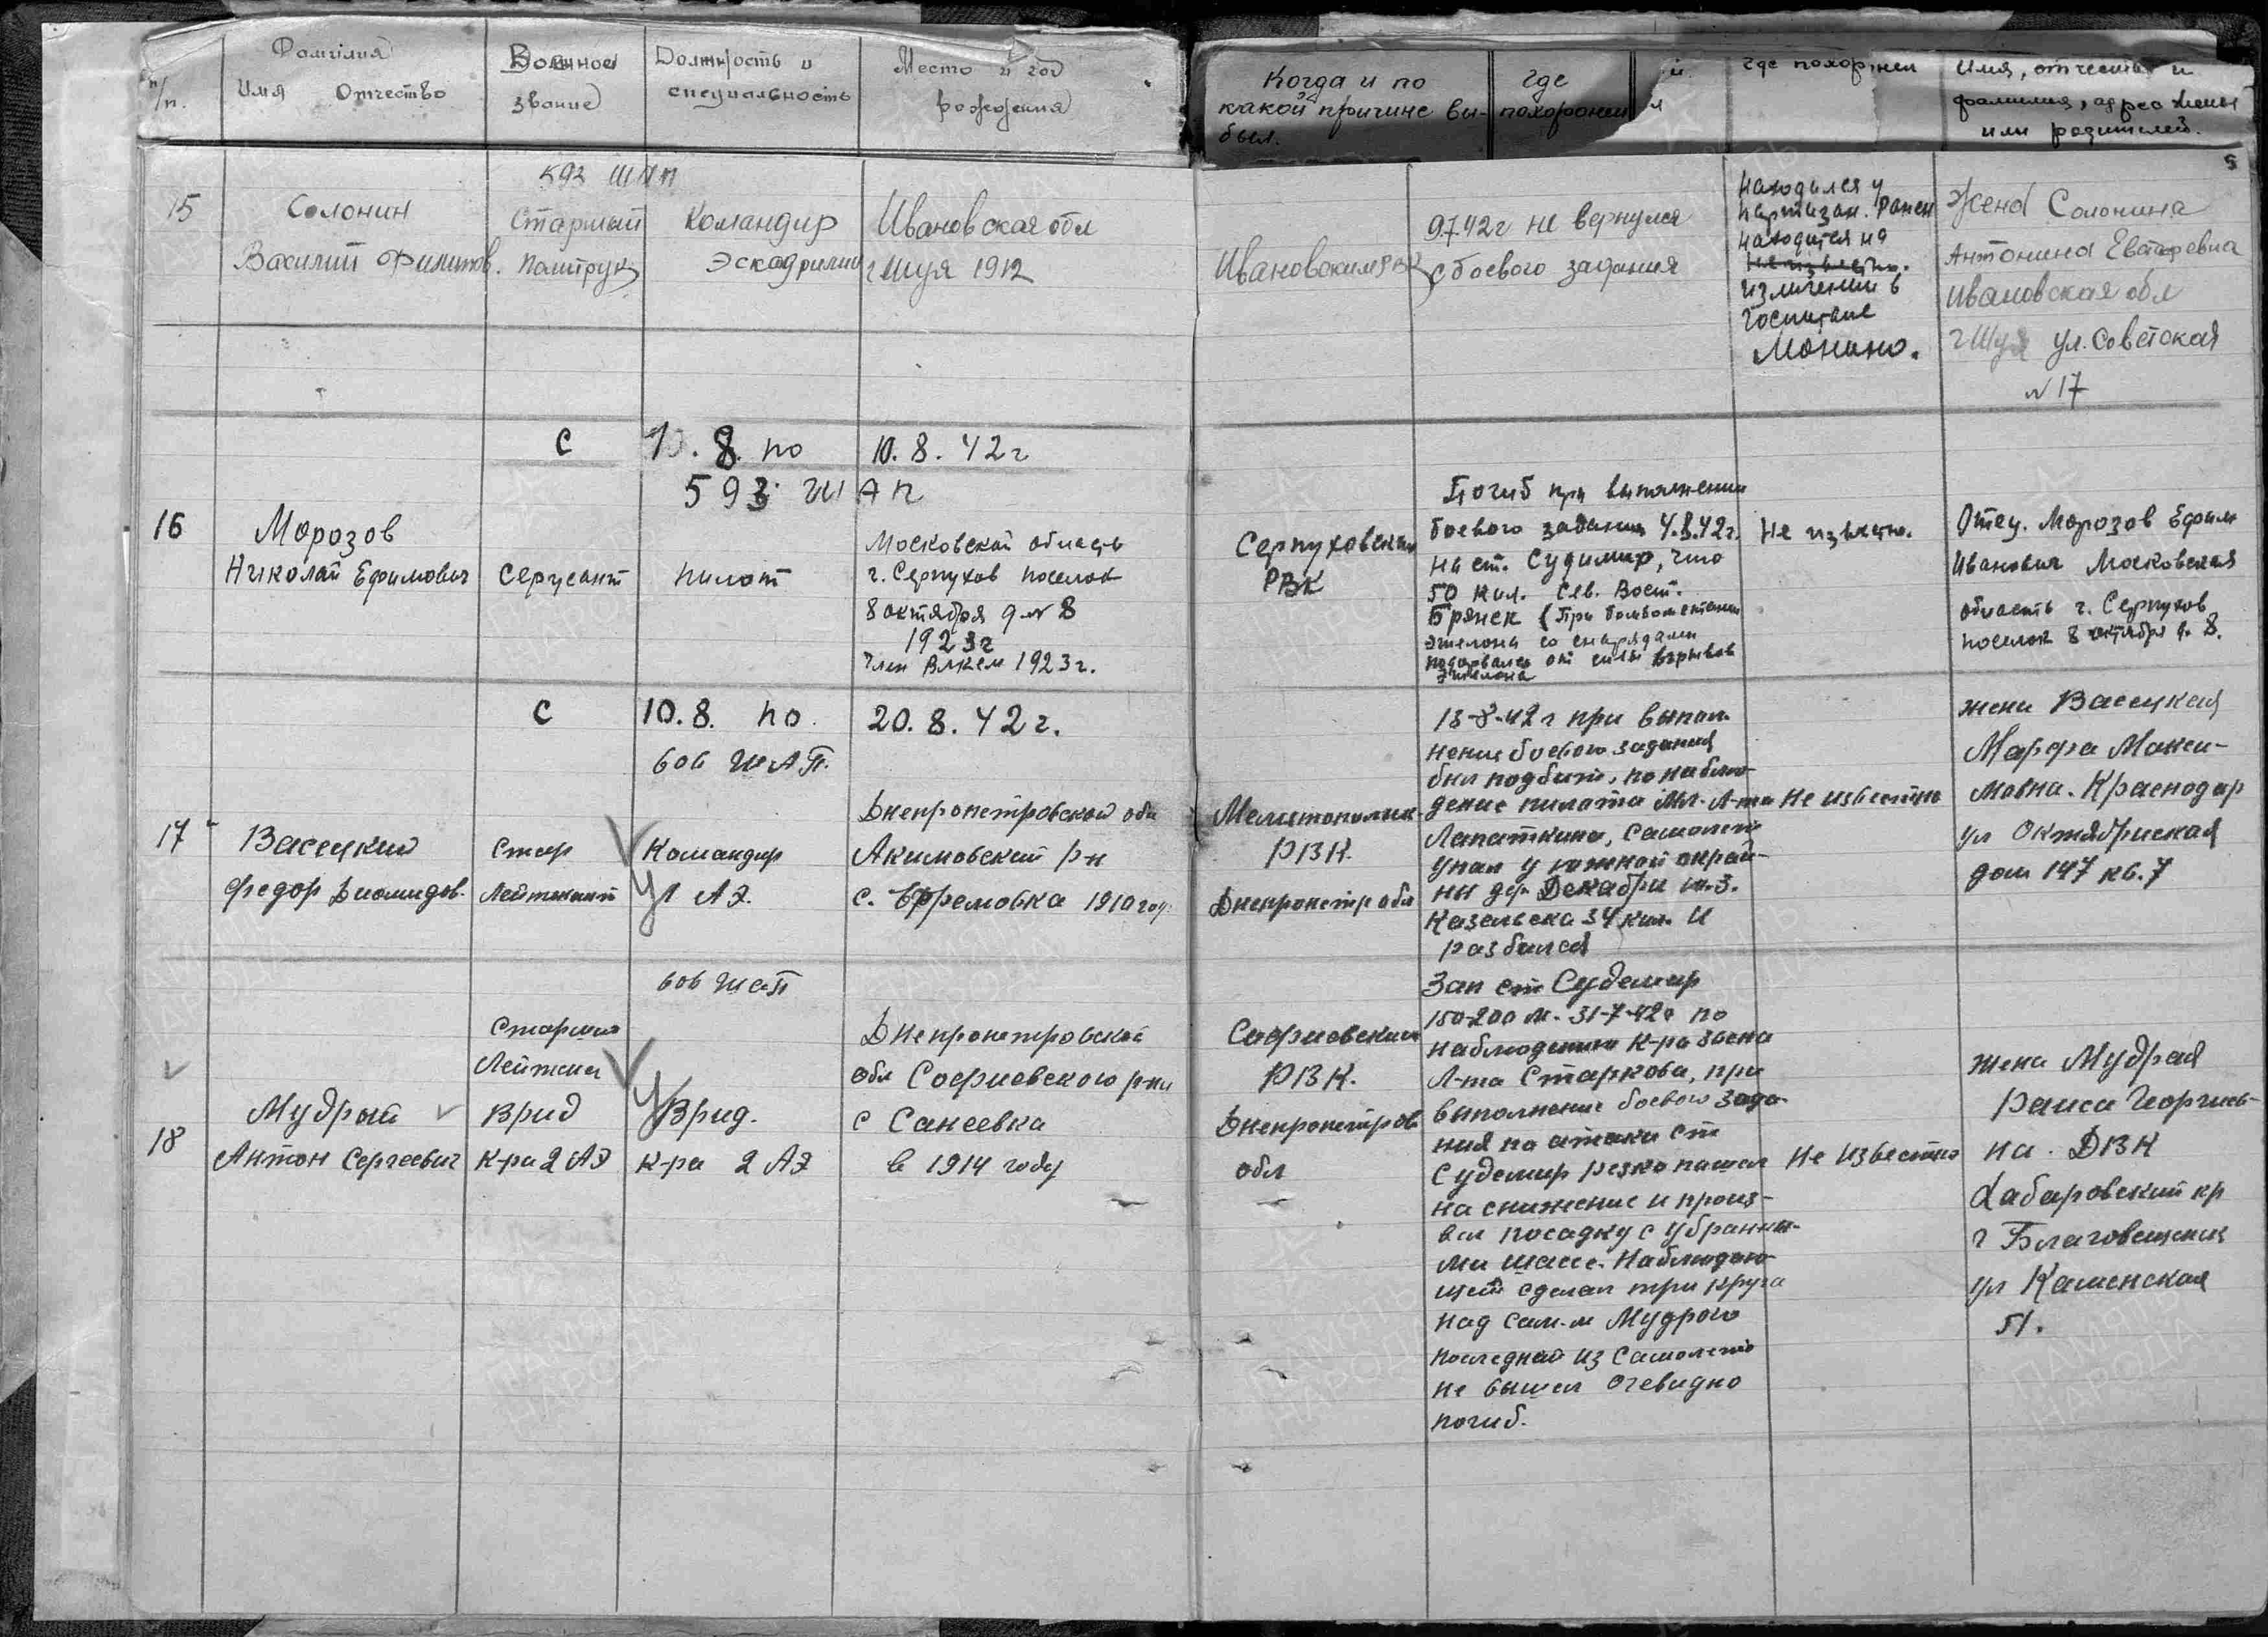 п/п.
Фамилия
Имя Отчество
Военное
звание
Должность и
специальность
Место и год
рождения
Когда и по
какой причине вы-
был.
где
похоронен
где похоронен
Имя, отчество и
фамилия, адрес жены
или родителей.
5
592 ШАП
15
Солонин
Василий Филипов.
Старший
Политрук
Командир
Эскадрилии
Ивановская обл
г Шуя 1912
Ивановским РВК
9.7.42г не вернулся
с боевого задания
Находился у
партизан. Ранен
находится на
не известно.
излечении в
госпитале
Монино.
Жена Солонина
Антонина
Ивановская обл
г Шуя ул. Советская
№ 17
С 10.8. по 10.8.42г
593 ШАП
16
Морозов
Николай Ефимович
Сержант
пилот
Московской область
г. Серпухов поселок
8 октября д № 8
1923г
Член Влксм 1923г.
Серпуховским
РВК
Погиб при выполнении
боевого задания 4.8.42г.
на ст. Судимир, что
50 кил. Сев. Вост.
Брянск (При бомбометании
эшелона со снарядами
подорвался от силы взрывов
эшелона
Не известно.
Отец. Морозов Ефим
Иванович Московская
область г. Серпухов
поселок 8 октября д. 8.
С 10.8. по 20.8.42г.
606 ШАП.
17
Васецкий
Федор Диомидов.
Стар
Лейтенант
Командир
АЭ.
Днепропетровской обл
Акимовский р-н
с. Ефремовка 1910 год
Мелитопольск.
РВК.
Днепропетр обл
18-8-42г при выпол-
нение боевого задания
был подбит, по наблю-
дение пилота Мл. Л-та
Лапаткина, самолет
упал у южной окрай-
ны дер. Декабри ю.з.
Казельска 34 кил. И
разбился
Не известно
жена Васецкая
Марфа Макси-
мовна. Краснодар
ул Октябриская
дом 147 кв. 7
606 ШАП
18
Мудрый
Антон Сергеевич
Старший
Лейтен
Врид
К-ра 2 АЭ
Врид.
К-ра 2 АЭ
Днепропетровской
обл Софиевского р-на
с Санеевка
в 1914 году
Софиевским
РВК.
Днепропетров
обл
Зап ст Судемир
150-200 м. 31-7-42г по
наблюдению к-ра звена
Л-та Старкова, при
выполнение боевого зада-
ния по атаки ст
Судемир резко пошел
на снижение и произ-
вел посадку с убранны-
ми шассе. Наблюдаю-
щей сделал три круга
над сам-м Мудрого
последний из самолета
не вышел очевидно
погиб.
Не известно
жена Мудрая
Раиса Георгиев-
на. ДВК
Хабаровский кр
г Благовещенск
ул Каменская
51.